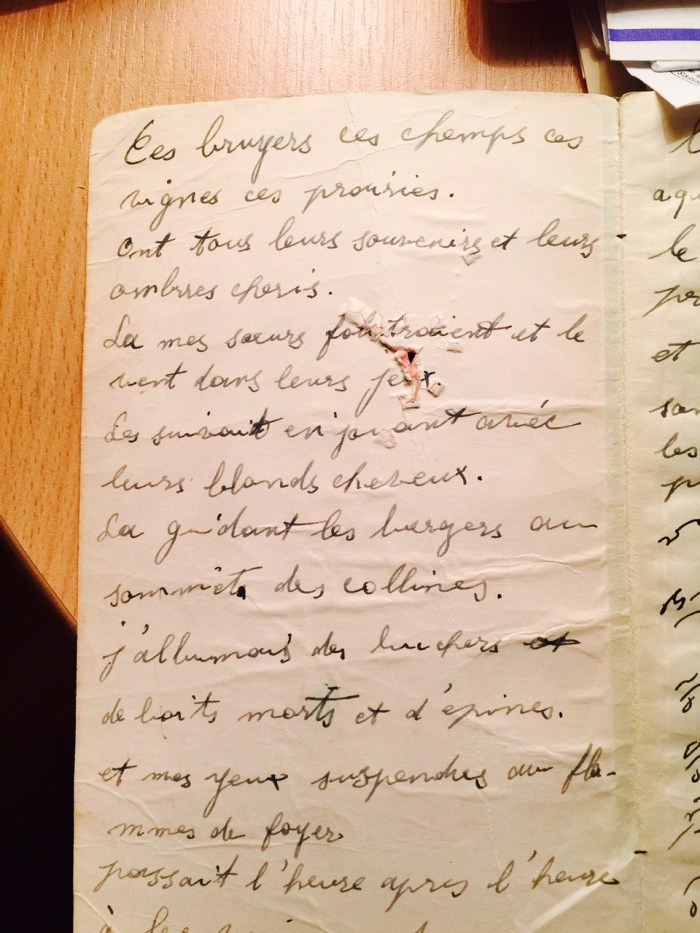 Ces bruyers ces champs ces
vignes ces prairies.
Ont tous leurs souvenirs et leurs
ombrres cheris.
La mes sœurs folatraient et le
vent dans leurs jeux.
Les suivait en jouant avéc
leurs blonds cheveux.
La guidant les bergers au
sommèt des collines.
j'allumais des buchers et
de boits morts et d'épines.
et mes yeux suspendus au fla-
mmes de foyer
passait l'heure apres l'heure
à les
aqu
le
et
les